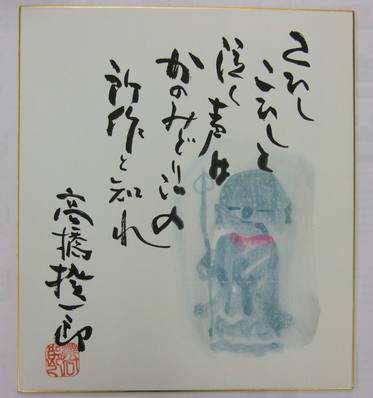 こひし
こひしと
泣く声は
かのみどり児の
所作と知れ
高橋揆一郎